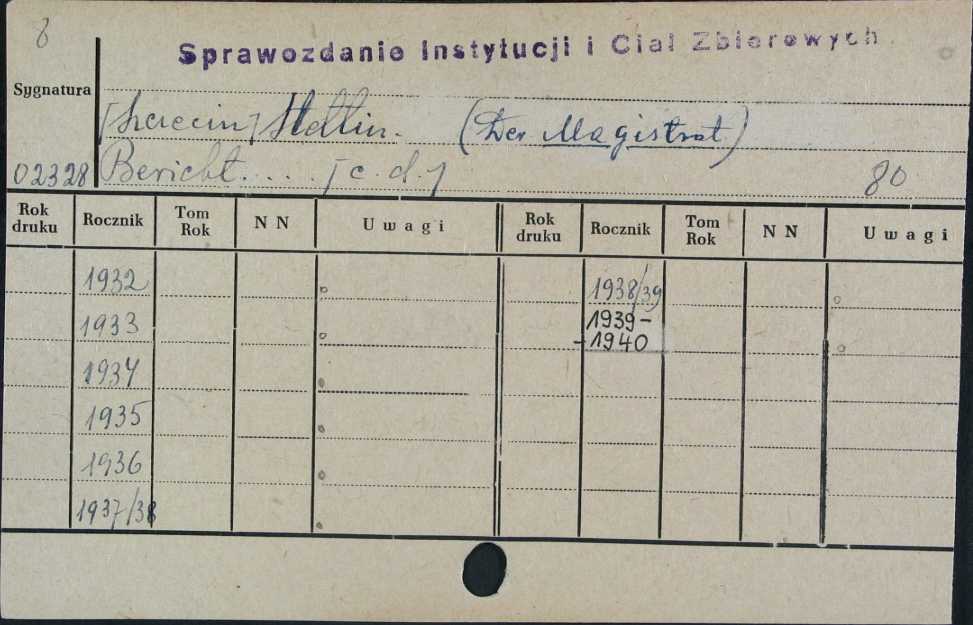 8
Sprawozdanie Instytucji i Ciał Zbiorowych
Sygnatura
[Szczecin] Stettin. (Der Magistrat)
02328 Bericht.... [c.d.] 80
Rok druku Rocznik Tom Rok NN Uwagi Rok druku Rocznik Tom Rok NN Uwagi
1932 1938/39
1933 1939-
-1940
1934
1935
1936
1937/38